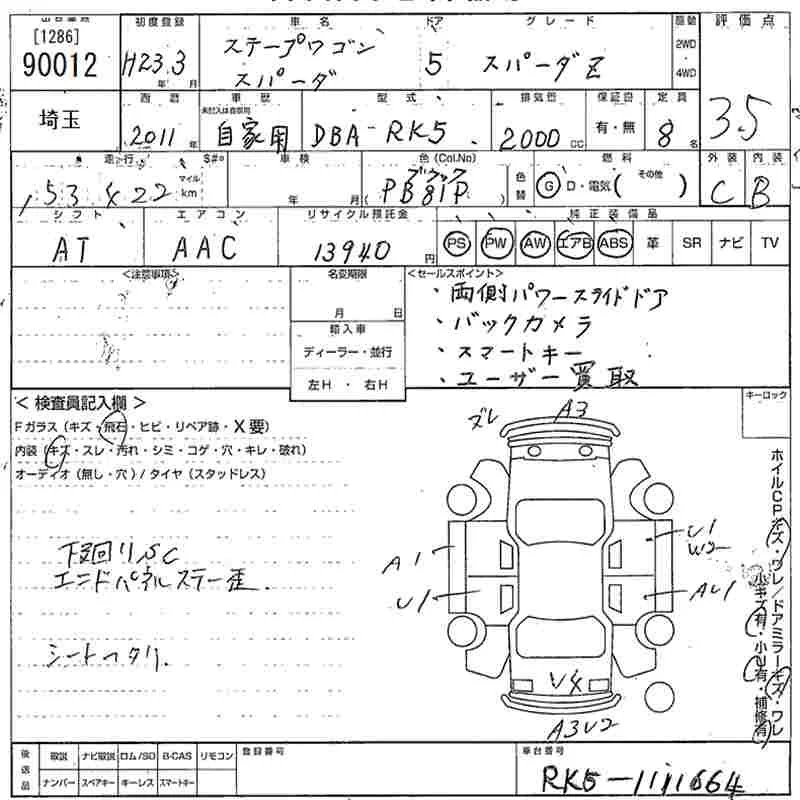 [1286]
90012
埼玉
初度登録
H23年3月
車名
ステップワゴン
スパーダ
ドア
5
グレード
スパーダZ
駆動
2WD
4WD
評価点
3.5
西暦
2011年
車歴
未記入は自家用
自家用
型式
DBA-RK5
排気量
2000cc
保証書
有・無
定員
8名
走行
153422
マイル
km
S#
車検
年 月
色(Col.No)
ブラック
(PB81P)
色替
燃料
G D・電気( その他 )
外装
C
内装
B
シフト
AT
エアコン
AAC
リサイクル預託金
13940円
純正装備品
PS PW AW エアB ABS 革 SR ナビ TV
<注意事項>
名変期限
月 日
輸入車
ディーラー・並行
左H・右H
<セールスポイント>
・両側パワースライドドア
・バックカメラ
・スマートキー
・ユーザー買取
< 検査員記入欄 >
Fガラス(キズ・飛石・ヒビ・リペア跡・X要)
内装(キズ・スレ・汚れ・シミ・コゲ・穴・キレ・破れ)
オーディオ(無し・穴)/タイヤ(スタッドレス)
下回りS,C
エンドパネルステー歪.
シートヘタリ.
キーロック
ズレ
A3
A1
U1
U1
W2
AU1
V4
A3U2
ホイルCPキズ・ワレ/ドアミラーキズ・ワレ
小キズ有・小U有・補修有
後送品
取説 ナビ取説 ロム/SD B-CAS リモコン
ナンバー スペアキー キーレス スマートキー
登録番号
車台番号
RK5-1111664